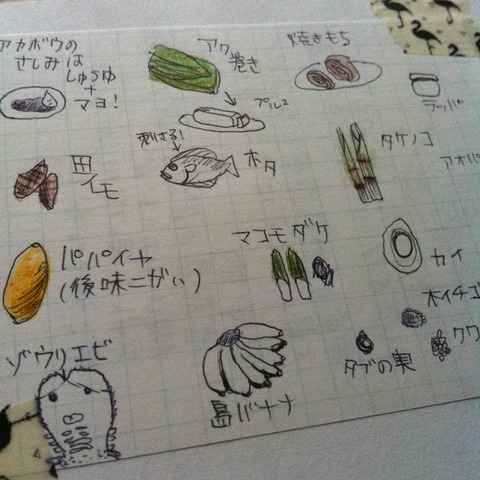 アカボウの
さしみは
しょうゆ
+
マヨ!
アワ
巻き
プルン
焼きもち
ラッパ
田
イモ
刺さる!
ホタ
タケノコ
アオパ
パパイヤ
(後味ニガい)
マコモダケ
カイ
木イチゴ
クワ
タブの実
ゾウリエビ
島バナナ